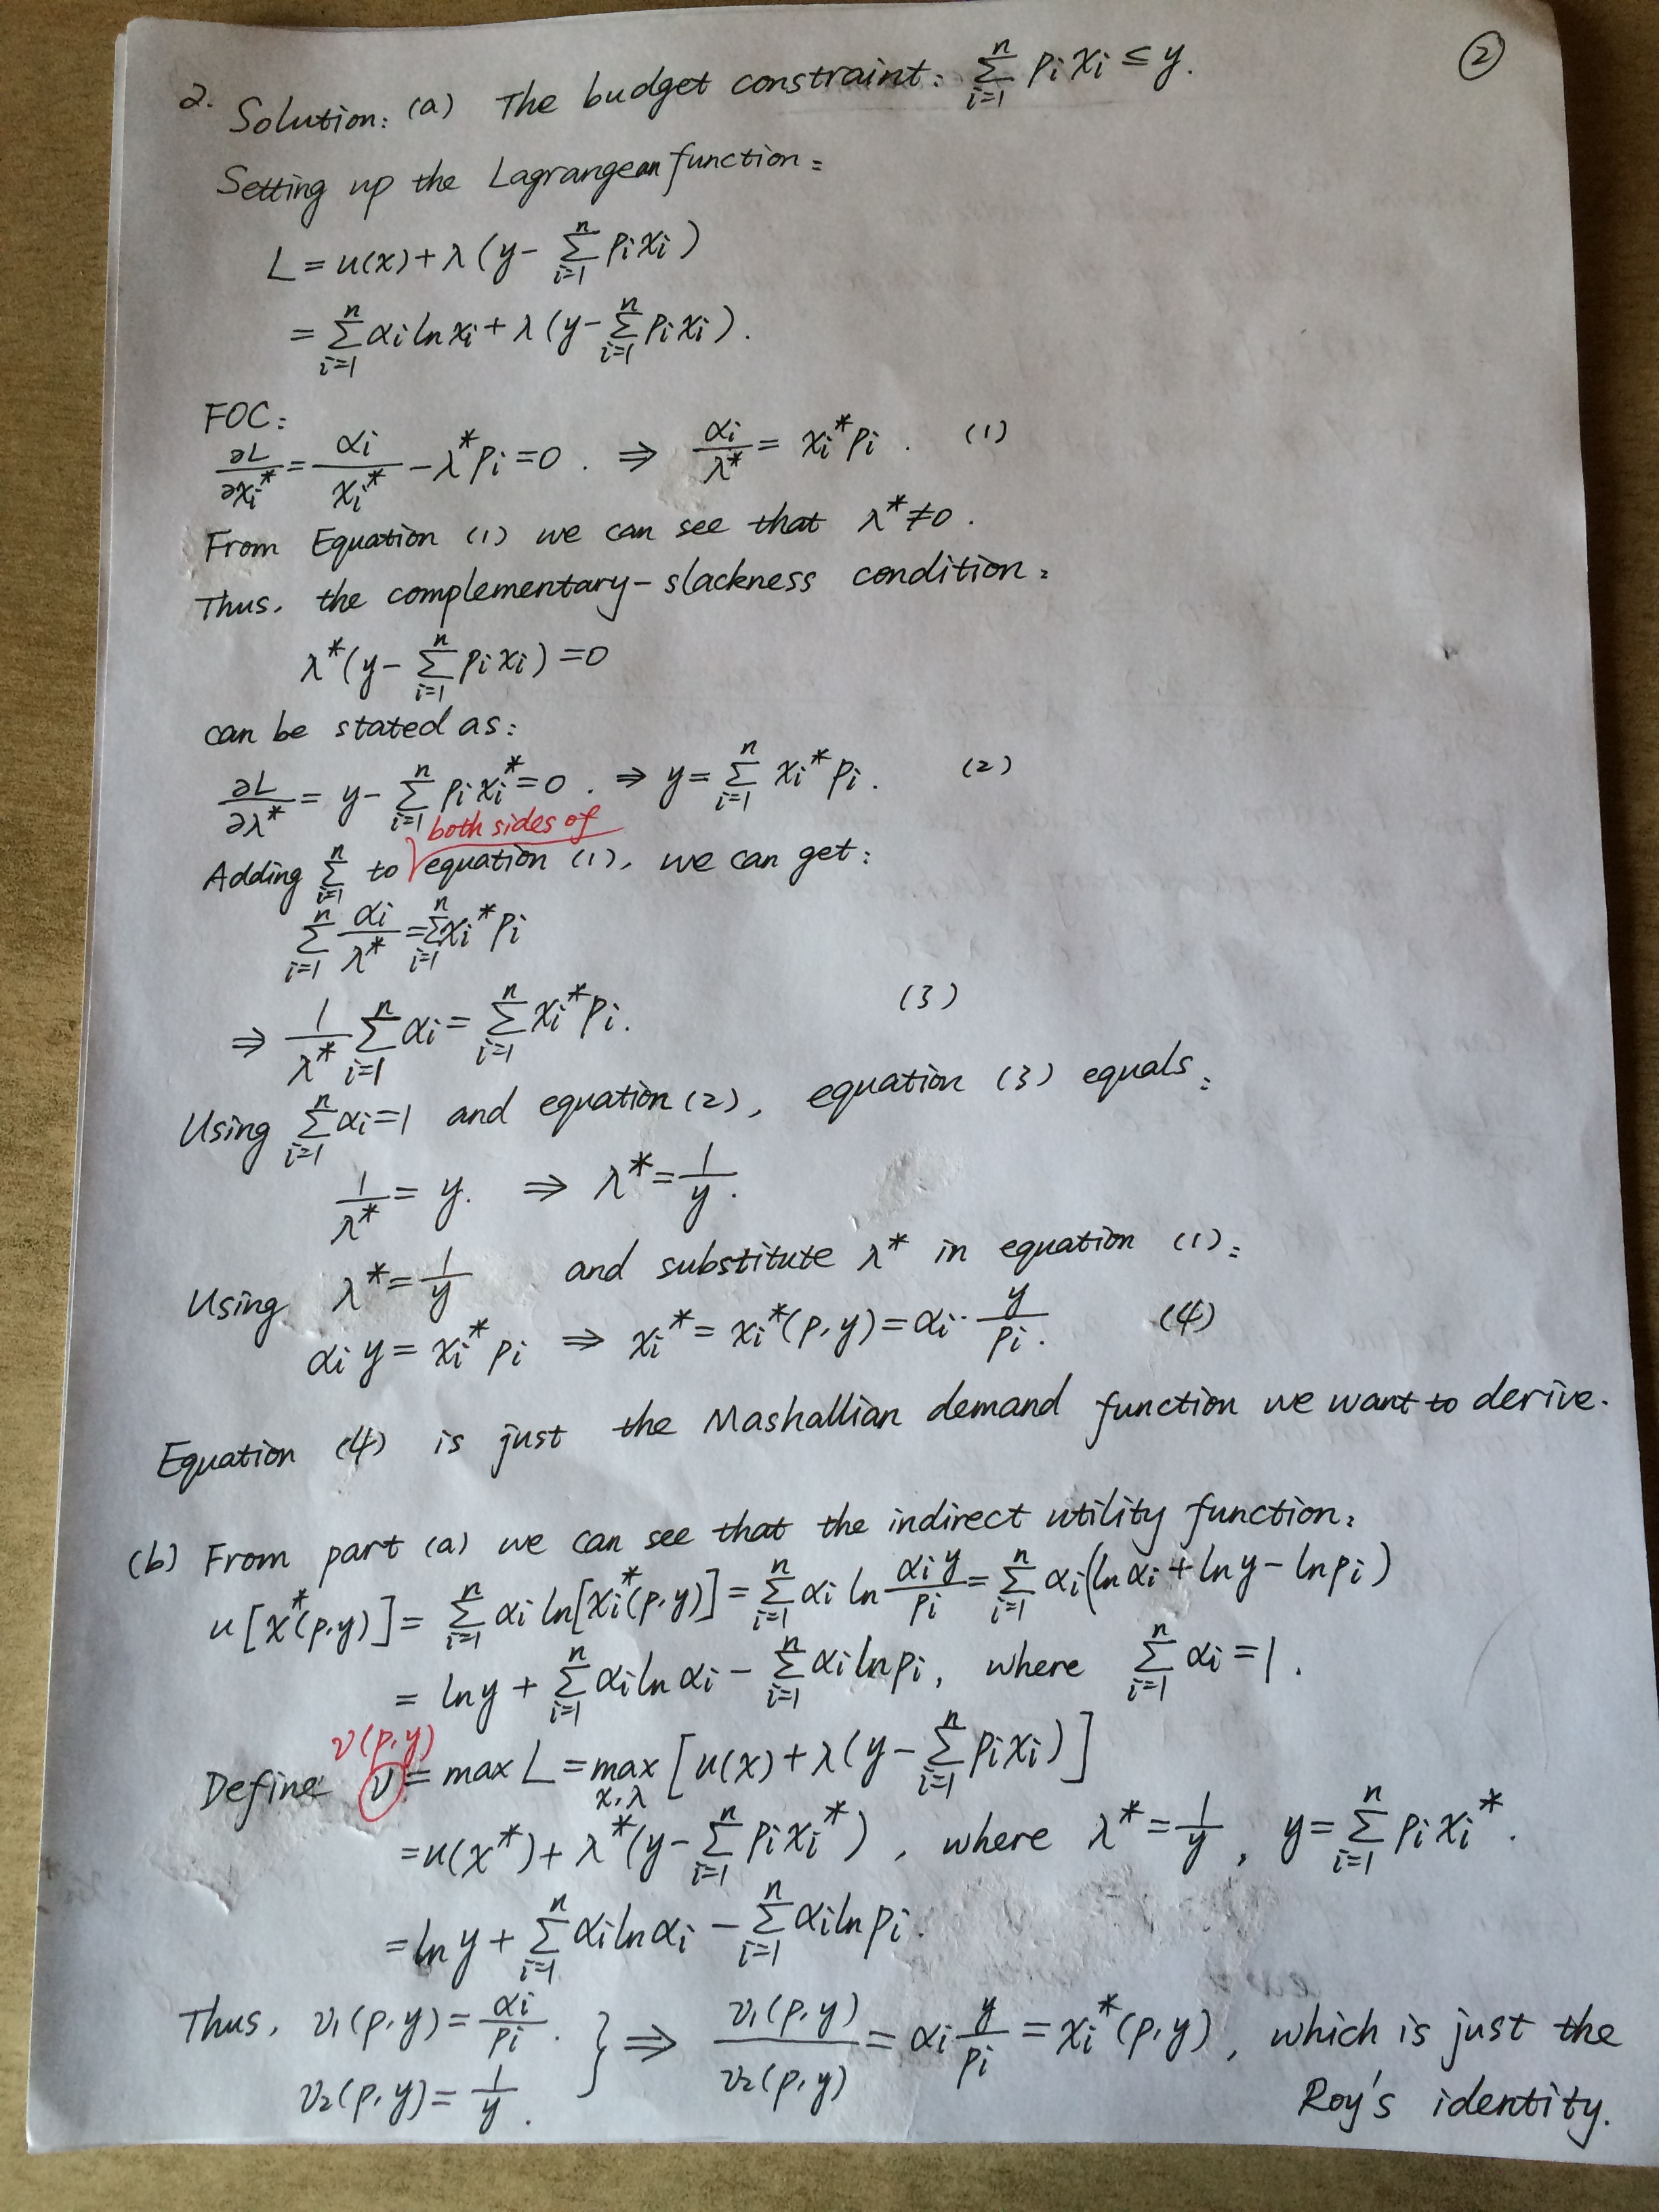 ②
2. Solution: (a) The budget constraint: $\sum_{i=1}^{n} p_i x_i \le y$.
Setting up the Lagrangean function:
$L = u(x) + \lambda (y - \sum_{i=1}^{n} p_i x_i)$
$= \sum_{i=1}^{n} \alpha_i \ln x_i + \lambda (y - \sum_{i=1}^{n} p_i x_i)$.
FOC:
$\frac{\partial L}{\partial x_i^*} = \frac{\alpha_i}{x_i^*} - \lambda^* p_i = 0. \Rightarrow \frac{\alpha_i}{\lambda^*} = x_i^* p_i.$ (1)
From Equation (1) we can see that $\lambda^* \ne 0$.
Thus, the complementary-slackness condition:
$\lambda^* (y - \sum_{i=1}^{n} p_i x_i) = 0$
can be stated as:
$\frac{\partial L}{\partial \lambda^*} = y - \sum_{i=1}^{n} p_i x_i^* = 0. \Rightarrow y = \sum_{i=1}^{n} x_i^* p_i.$ (2)
both sides of
Adding $\sum_{i=1}^{n}$ to equation (1), we can get:
$\sum_{i=1}^{n} \frac{\alpha_i}{\lambda^*} = \sum_{i=1}^{n} x_i^* p_i$
$\Rightarrow \frac{1}{\lambda^*} \sum_{i=1}^{n} \alpha_i = \sum_{i=1}^{n} x_i^* p_i.$ (3)
Using $\sum_{i=1}^{n} \alpha_i = 1$ and equation (2), equation (3) equals:
$\frac{1}{\lambda^*} = y. \Rightarrow \lambda^* = \frac{1}{y}.$
Using $\lambda^* = \frac{1}{y}$ and substitute $\lambda^*$ in equation (1):
$\alpha_i y = x_i^* p_i \Rightarrow x_i^* = x_i^*(p, y) = \alpha_i \cdot \frac{y}{p_i}.$ (4)
Equation (4) is just the Mashallian demand function we want to derive.
(b) From part (a) we can see that the indirect utility function:
$u[x^*(p,y)] = \sum_{i=1}^{n} \alpha_i \ln[x_i^*(p,y)] = \sum_{i=1}^{n} \alpha_i \ln \frac{\alpha_i y}{p_i} = \sum_{i=1}^{n} \alpha_i (\ln \alpha_i + \ln y - \ln p_i)$
$= \ln y + \sum_{i=1}^{n} \alpha_i \ln \alpha_i - \sum_{i=1}^{n} \alpha_i \ln p_i$, where $\sum_{i=1}^{n} \alpha_i = 1$.
$v(p,y)$
Define $v = \max L = \max_{x,\lambda} [u(x) + \lambda (y - \sum_{i=1}^{n} p_i x_i)]$
$= u(x^*) + \lambda^* (y - \sum_{i=1}^{n} p_i x_i^*)$, where $\lambda^* = \frac{1}{y}$, $y = \sum_{i=1}^{n} p_i x_i^*$.
$= \ln y + \sum_{i=1}^{n} \alpha_i \ln \alpha_i - \sum_{i=1}^{n} \alpha_i \ln p_i.$
Thus, $v_1(p,y) = \frac{\alpha_i}{p_i}.$ } $\Rightarrow \frac{v_1(p,y)}{v_2(p,y)} = \alpha_i \frac{y}{p_i} = x_i^*(p,y)$, which is just the
$v_2(p,y) = \frac{1}{y}.$ Roy's identity.